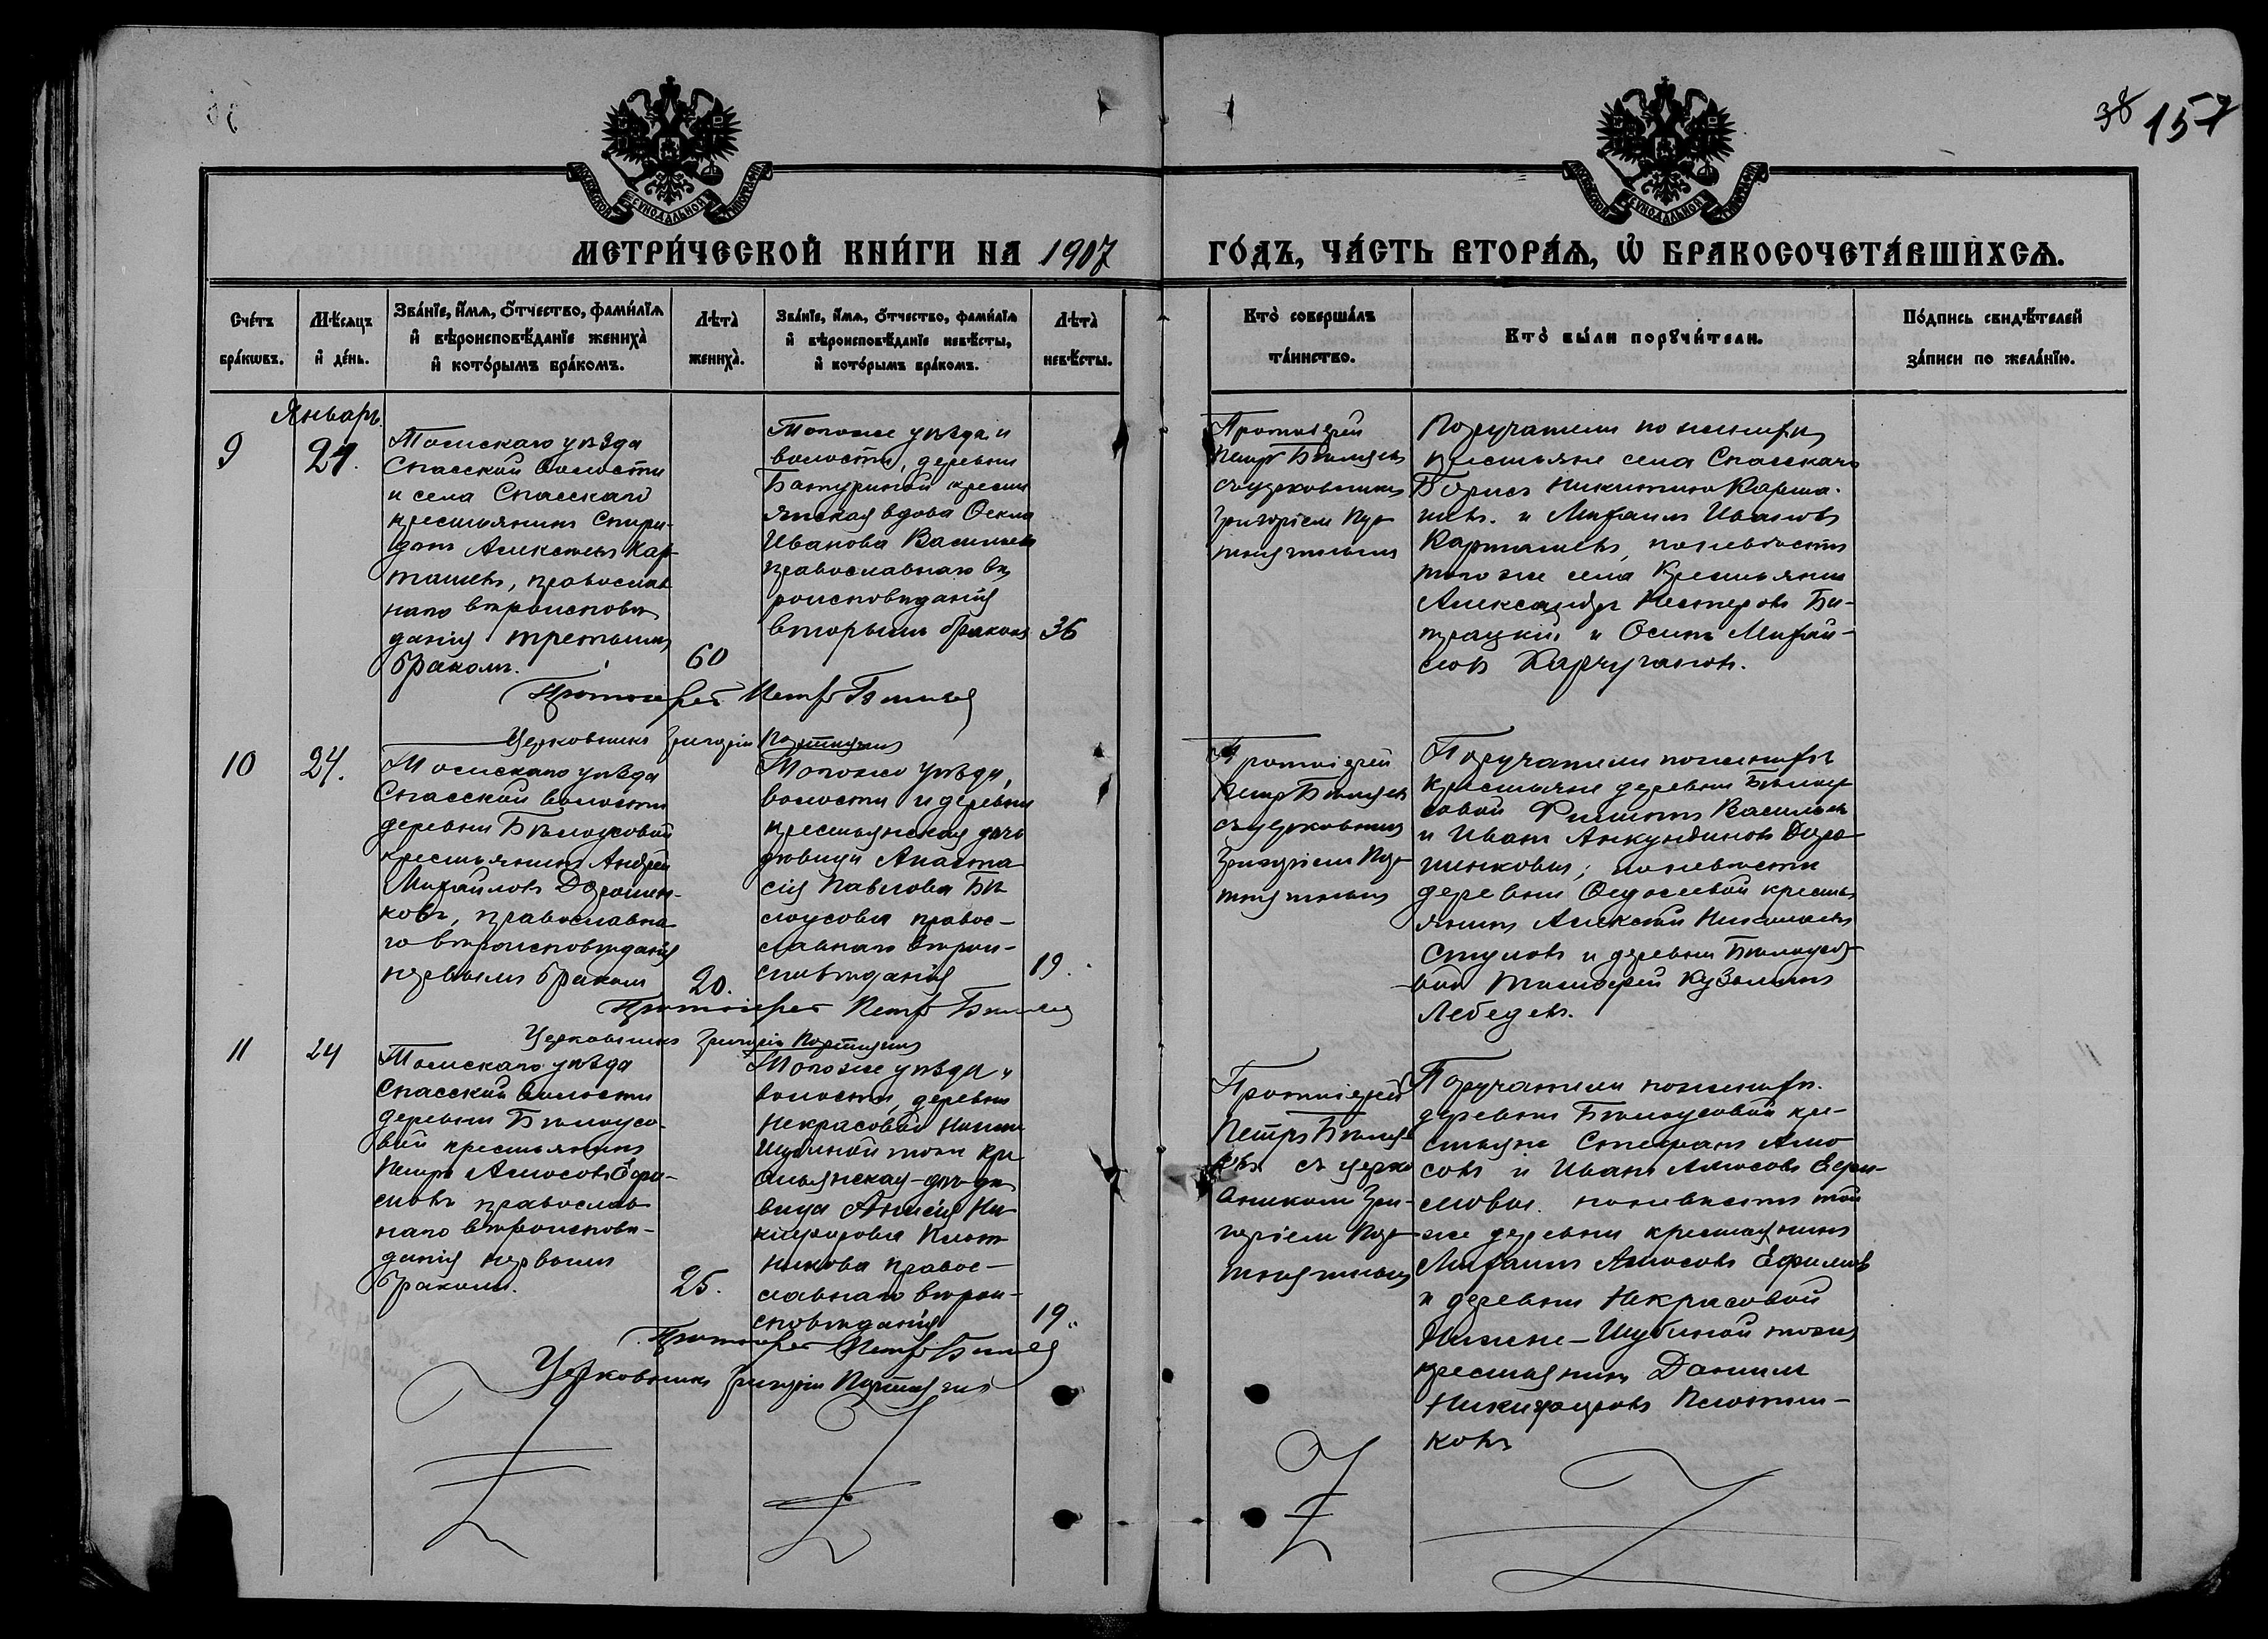 38 157
МОСКОВСКОЙ СѴНОДАЛЬНОЙ ТИПОГРАФІИ
МОСКОВСКОЙ СѴНОДАЛЬНОЙ ТИПОГРАФІИ
МЕТРИ́ЧЕСКОЙ КНИ́ГИ НА 1907 ГО́ДЪ, ЧА́СТЬ ВТОРА́Ѧ, Ѽ БРАКОСОЧЕТА́ВШИХСѦ.
Сче́тъ
бра́кѡвъ.
Мѣ́сѧцъ
и҆ де́нь.
Зва́нїе, и҆́мѧ, ѻ҆́тчество, фами́лїѧ
и҆ вѣроисповѣ́данїе жениха̀
и҆ кото́рымъ бра́комъ.
Лѣта̀
жениха̀.
Зва́нїе, и҆́мѧ, ѻ҆́тчество, фами́лїѧ
и҆ вѣроисповѣ́данїе невѣ́сты,
и҆ кото́рымъ бра́комъ.
Лѣта̀
невѣ́сты.
Кто̀ соверша́лъ
та́инство.
Кто̀ бы́ли порꙋчи́тели.
По́дпись свидѣ́телей
за́писи по жела́нїю.
Январь.
9
24.
Томскаго уѣзда
Спасской волости
и села Спасскаго
крестьянинъ Спири-
донъ Алексѣевъ Кар-
ташевъ, православ
наго вѣроисповѣ
данія третьимъ
бракомъ.
60
Тогоже уѣзда и
волости, деревни
Батуриной крестьянская вдова
Иванова Васильева
православнаго вѣ
роисповѣданія
вторымъ бракомъ
36
Протоіерей
Петръ Бѣляевъ
съ церковникомъ
Григоріемъ
Поручатели по женихѣ
крестьяне села Спасскаго
Борисъ Никитинъ Карта-
шевъ. и Михаилъ Ивановъ
Карташевъ, по невѣстѣ
того же села Крестьяне
Александръ Нестеровъ
и Осипъ Михаи-
ловъ Карчугановъ.
Протоіерей Петръ Бѣляевъ
Церковникъ Григорій
10
24.
Томскаго уѣзда
Спасской волости
деревни Бѣлоусовой
крестьянинъ Андрей
Михайловъ Дорошен-
ковъ, православна-
го вѣроисповѣданія
первымъ бракомъ
20.
Тогоже уѣзда,
волости и деревни
крестьянская дочь
дѣвица Анаста
сія Павлова Бѣ
лоусова правос-
лавнаго вѣрои-
сповѣданія
19.
Протоіерей
Петръ Бѣляевъ
съ церковникомъ
Григоріемъ
Поручатели по женихѣ
крестьяне деревни Бѣлоу
совой Филиппъ Васильевъ
и Иванъ Анкундиновъ Доро-
шенковы; по невѣстѣ
деревни Федосеевой крестья
янинъ Алексѣй Николаевъ
Стуловъ и деревни Бѣлоусо-
вой Тимофей Кузьминъ
Лебедевъ.
Протоіерей Петръ Бѣляевъ
Церковникъ Григорій
11
24
Томскаго уѣзда
Спасской волости
деревни Бѣлоусо-
вой крестьянинъ
Петръ Амосовъ Ефи-
мовъ православ
наго вѣроисповѣ-
данія первымъ
бракомъ.
25.
Тогоже уѣзда и
волости, деревни
Некрасовой Нижне
Шубиной тожъ кре
стьянская дочь дѣ
вица Анисія Ни
кифорова Плот
никова правос-
лавнаго вѣрои-
сповѣданія
19.
Протоіерей
Петръ Бѣляевъ
съ церков
никомъ Гри-
горіемъ
Поручатели по женихѣ.
деревни Бѣлоусовой кре-
стьяне Степанъ Амо
совъ и Иванъ Амосовъ Ефи-
мовы. по невѣстѣ той
же деревни крестьянинъ
Михаилъ Амосовъ Ефимовъ
и деревни Некрасовой
Нижне-Шубиной тожъ
крестьянинъ Даніилъ
Никифоровъ Плотни-
ковъ
Протоіерей Петръ Бѣляевъ
Церковникъ Григорій